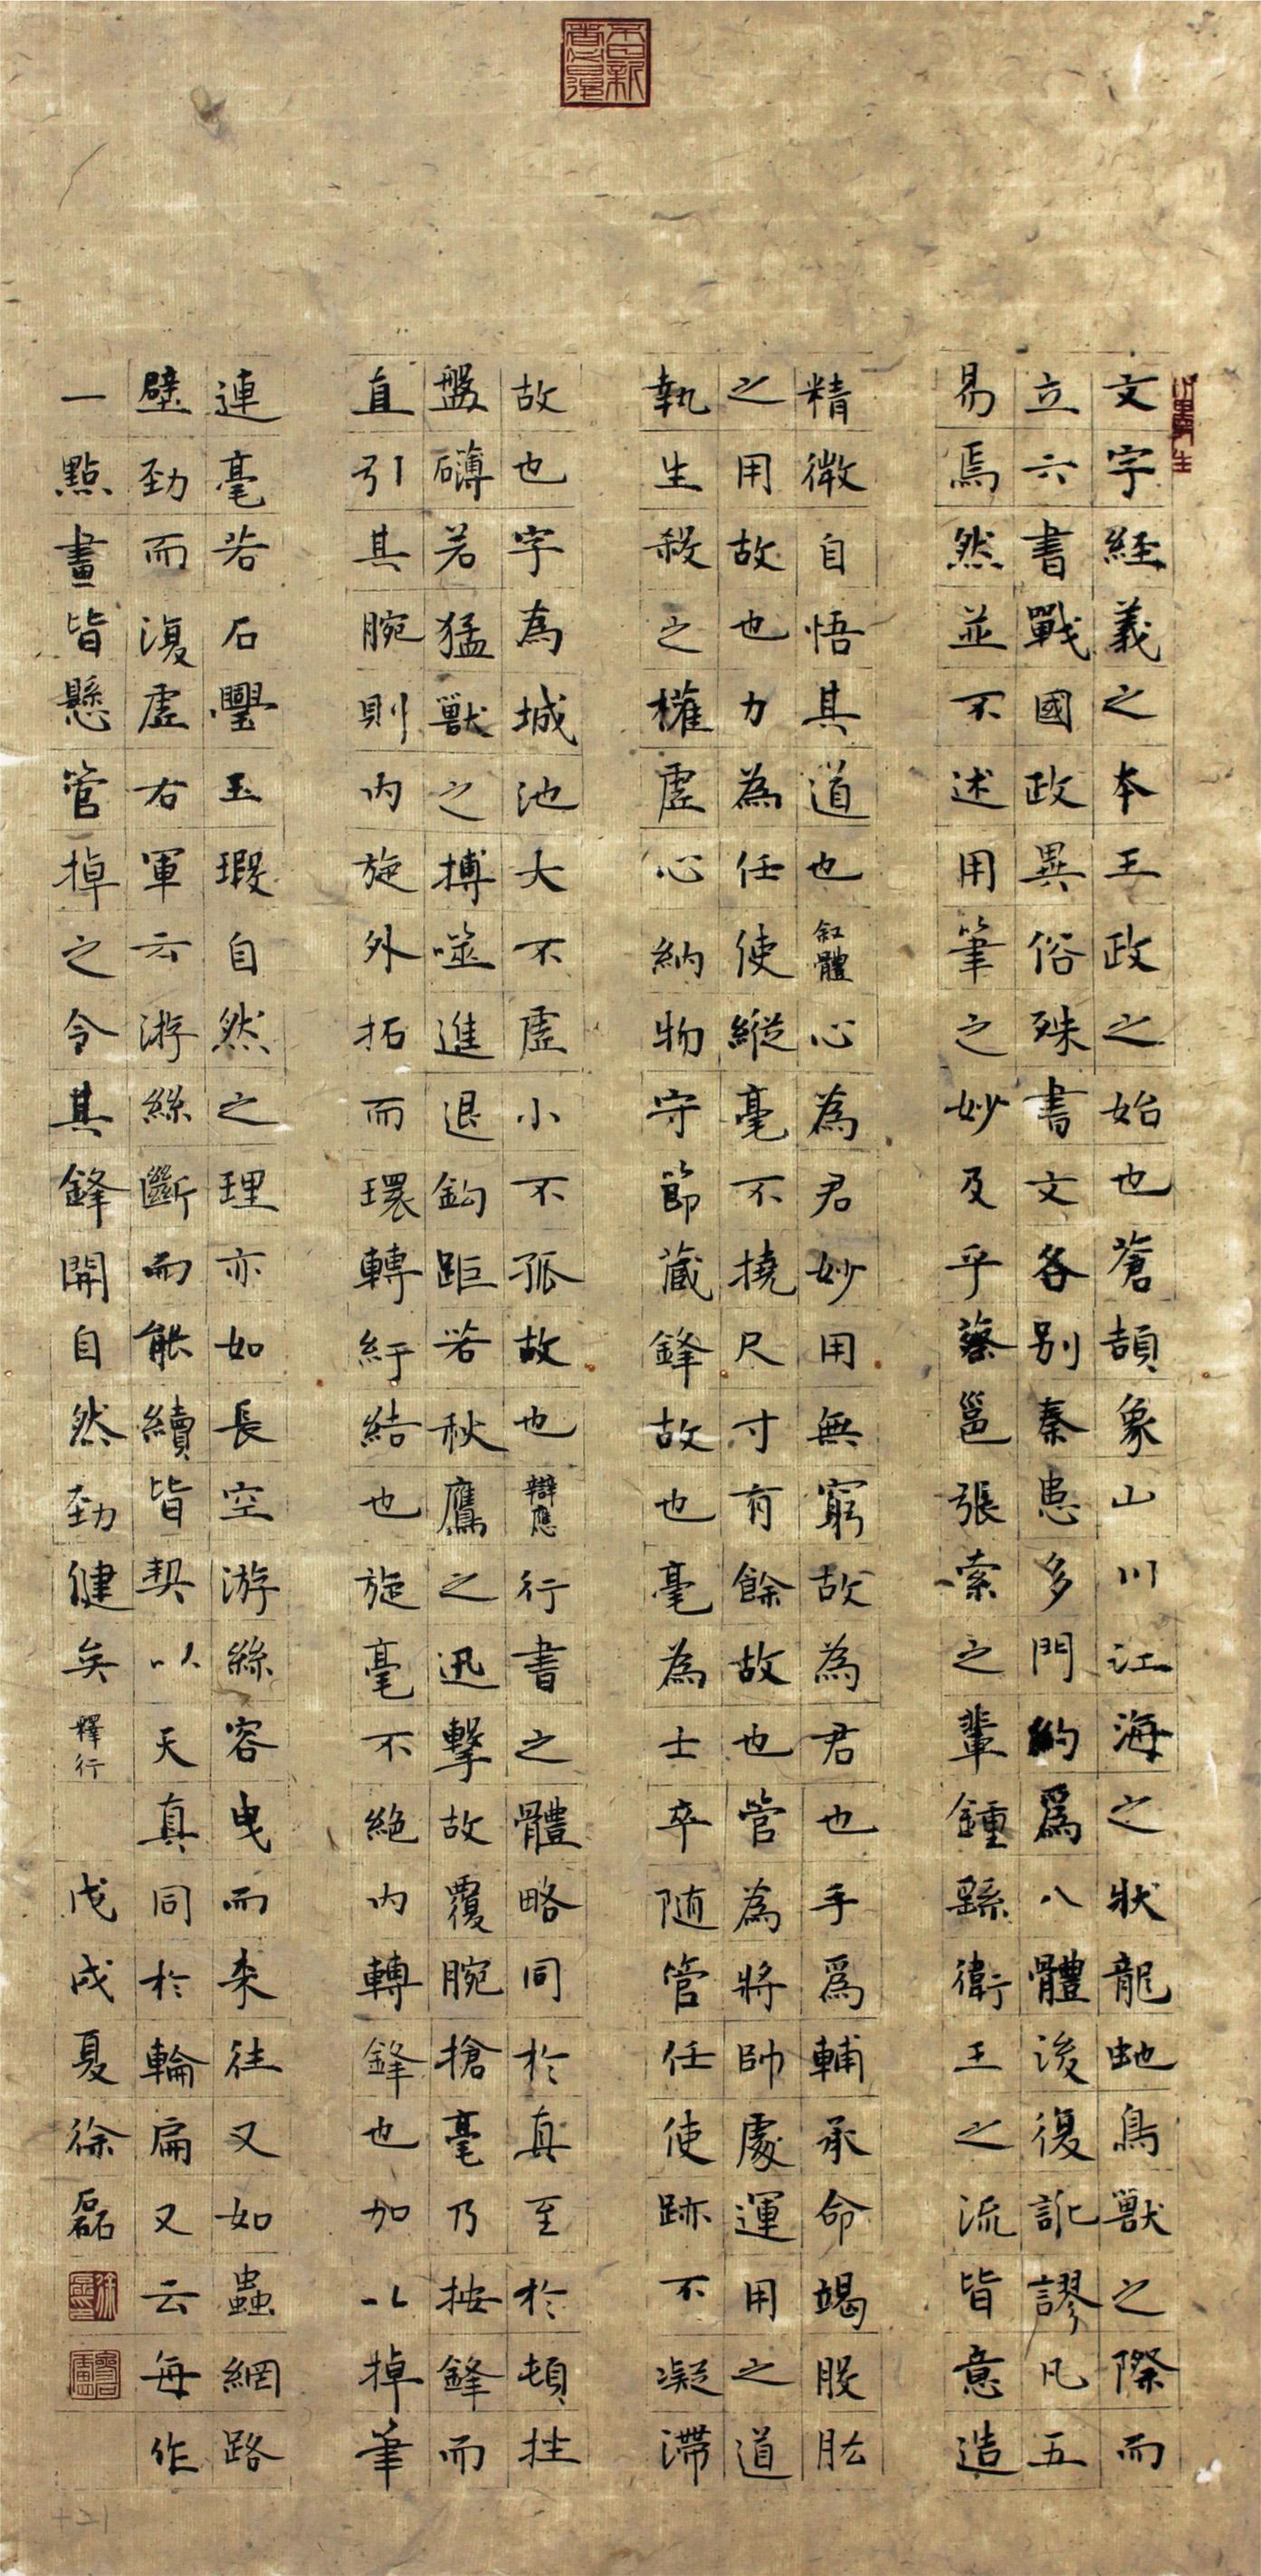 文字經義之本王政之始也蒼頡象山川江海之狀龍虵鳥獸之際而
立六書戰國政異俗殊書文各别秦患多門約爲八體後復訛謬凡五
易焉然並不述用筆之妙及乎蔡邕張索之輩鍾繇衛王之流皆意造
精微自悟其道也叙體心為君妙用無窮故為君也手爲輔承命竭股肱
之用故也力為任使縱毫不撓尺寸有餘故也管為將帥處運用之道
執生殺之權虛心納物守節藏鋒故也毫為士卒随管任使跡不凝滯
故也字為城池大不虛小不孤故也辯應行書之體略同於真至於頓挫
盤礴若猛獸之搏噬進退鈎距若秋鷹之迅擊故覆腕搶毫乃按鋒而
直引其腕則内旋外拓而環轉紆結也旋毫不絶内轉鋒也加以掉筆
連毫若石璺玉瑕自然之理亦如長空游絲容曳而来往又如蟲網路
壁勁而復虛右軍云游絲斷而能續皆契以天真同於輪扁又云每作
一點畫皆懸管掉之令其鋒開自然勁健矣釋行 戊戌夏徐磊